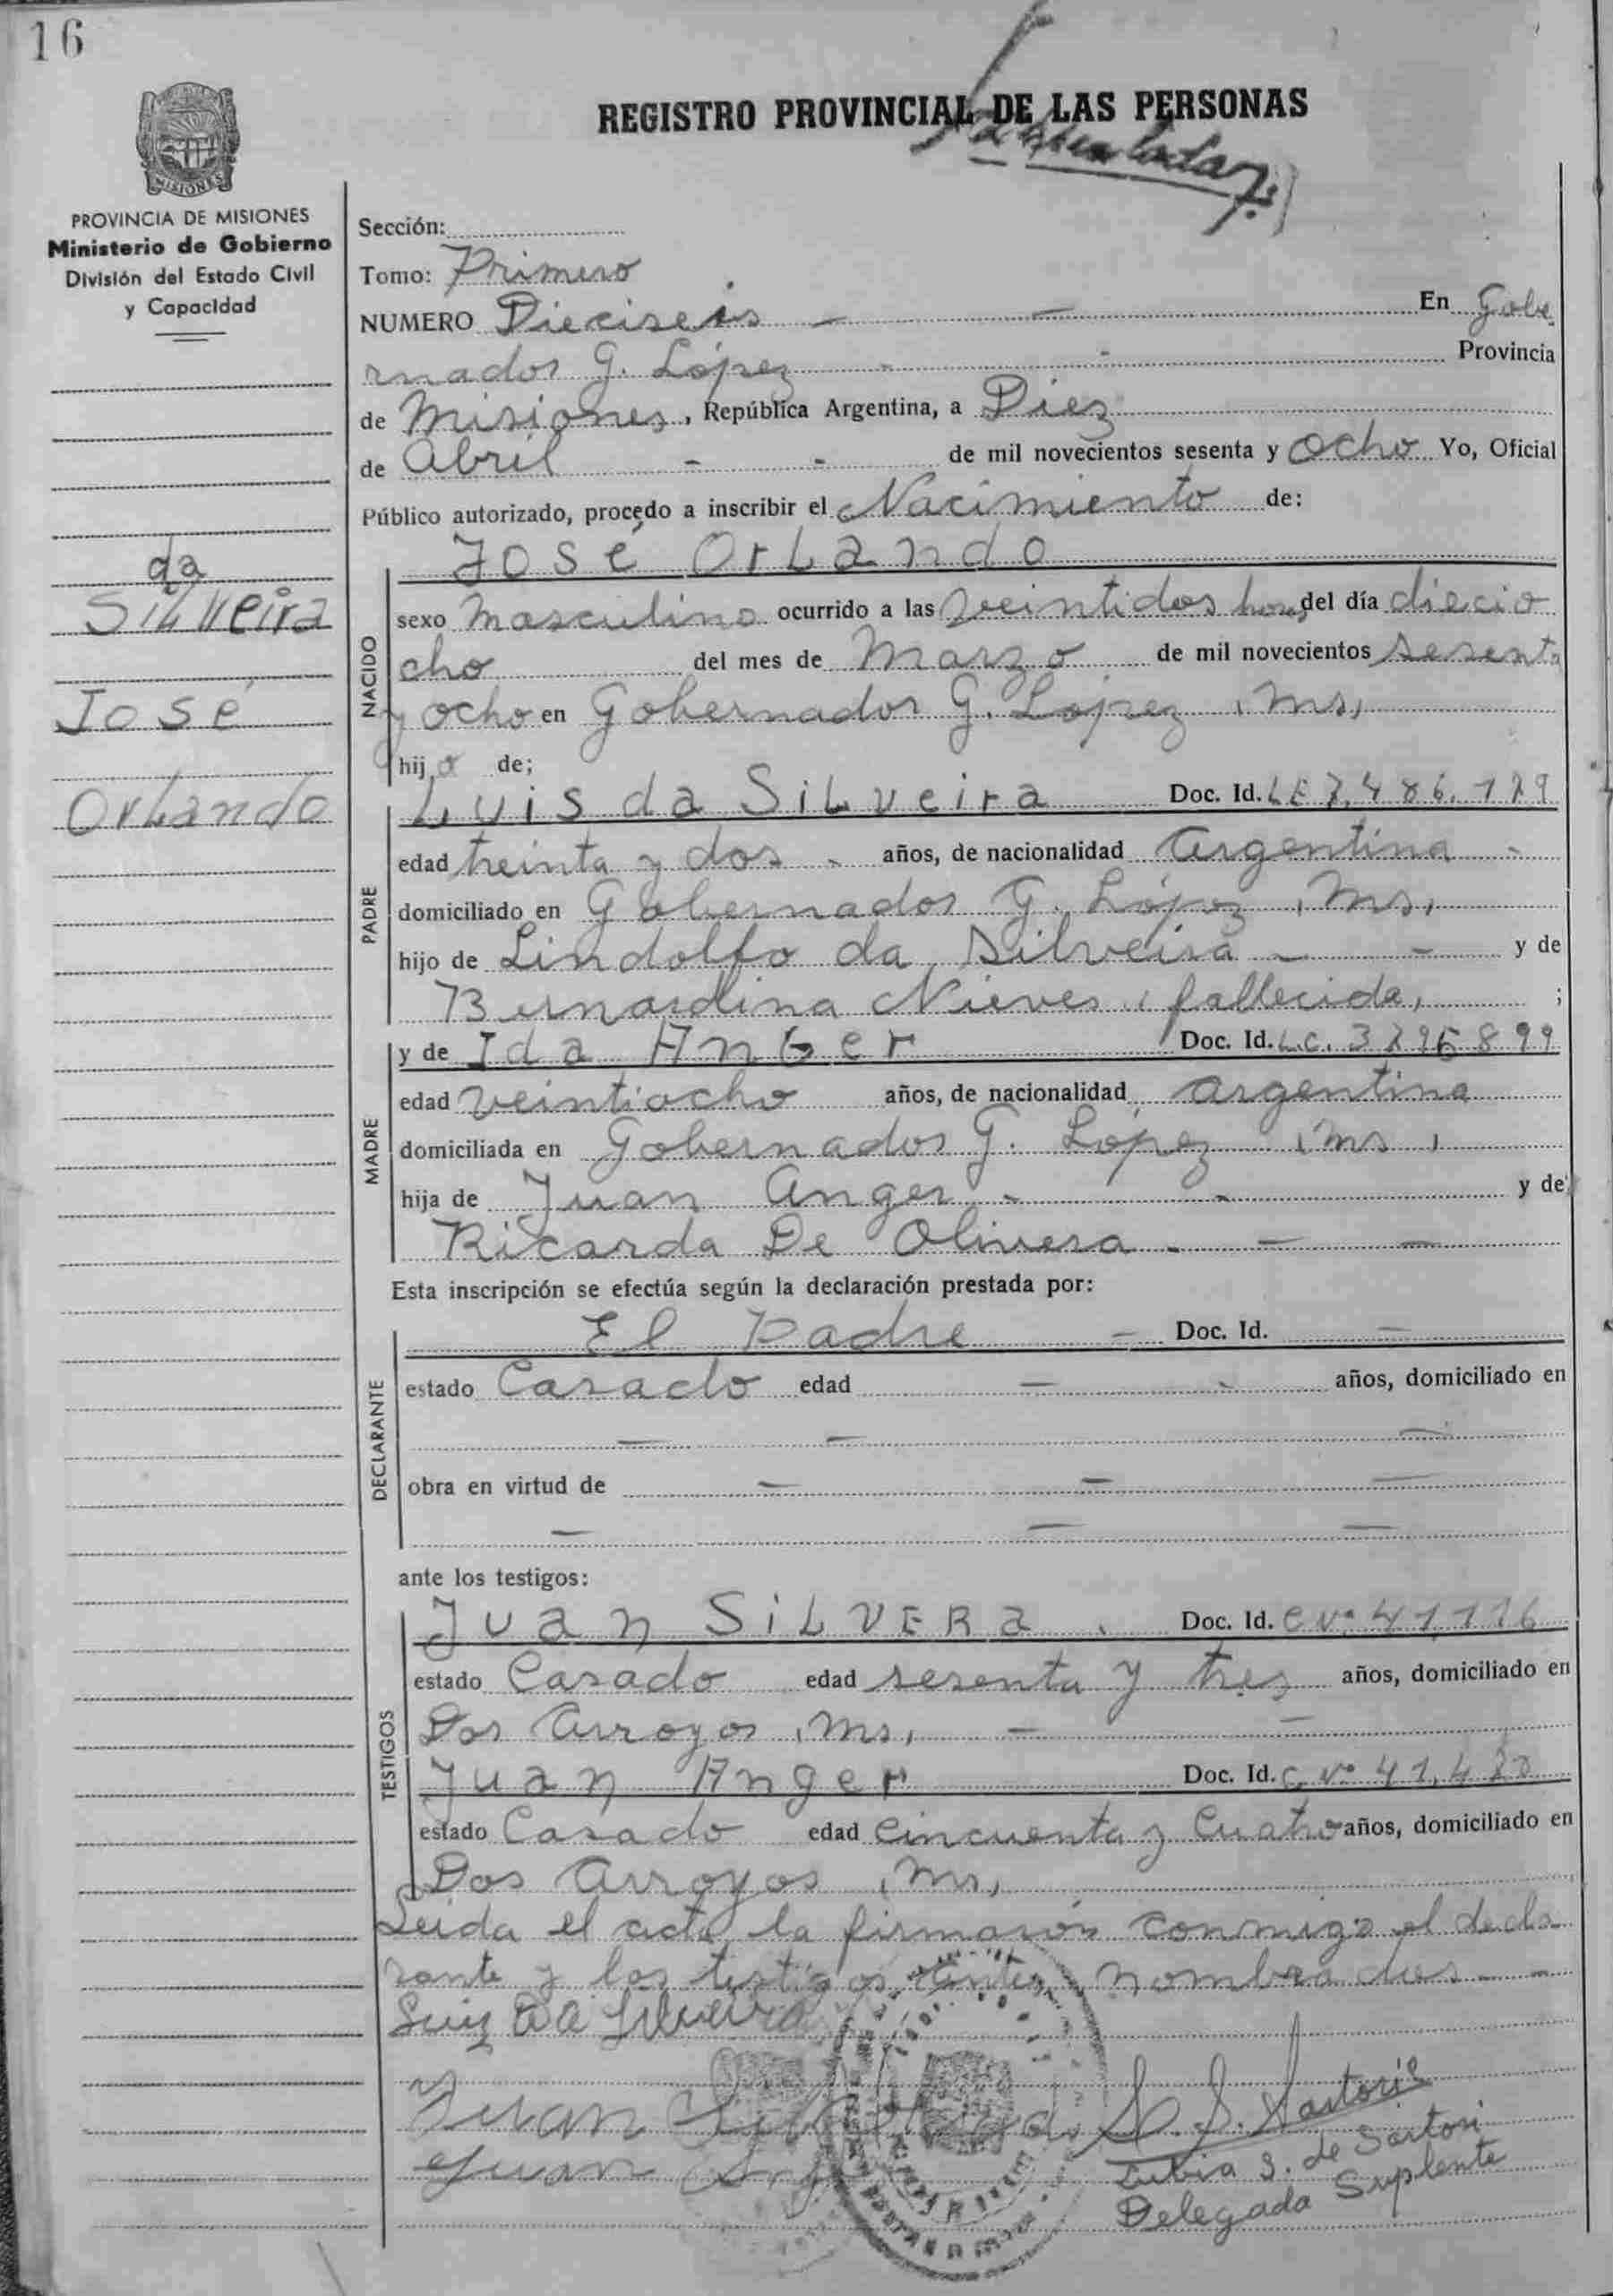 16
REGISTRO PROVINCIAL DE LAS PERSONAS
MISIONES
PROVINCIA DE MISIONES
Ministerio de Gobierno
División del Estado Civil
y Capacidad
da
Silveira
José
Orlando
Sección:
Tomo: Primero
NUMERO Dieciseis - - En Gobe
rnador G. López - - Provincia
de Misiones, República Argentina, a Diez
de Abril - - de mil novecientos sesenta y ocho Yo, Oficial
Público autorizado, procedo a inscribir el Nacimiento de:
José Orlando
NACIDO
sexo masculino ocurrido a las veintidos horas del día diecio
cho del mes de Marzo de mil novecientos sesenta
y ocho en Gobernador G. López, Ms,
hijo de;
PADRE
Luis da Silveira Doc. Id. L.E 7.486.179
edad treinta y dos - años, de nacionalidad Argentina -
domiciliado en Gobernador G. López, Ms,
hijo de Lindolfo da Silveira - - y de
Bernardina Nieves, fallecida, ;
MADRE
y de Ida Anger Doc. Id. L.C.
edad veintiocho años, de nacionalidad argentina
domiciliada en Gobernador G. López, Ms,
hija de Juan Anger - - y de
Ricarda De Olivera - - -
Esta inscripción se efectúa según la declaración prestada por:
DECLARANTE
El Padre - Doc. Id. -
estado Casado edad - - años, domiciliado en
- - -
obra en virtud de - - -
- - -
ante los testigos:
TESTIGOS
Juan SiLVERa. Doc. Id. C. Nº 41,116
estado Casado edad sesenta y tres años, domiciliado en
Dos Arroyos, Ms, - -
Juan Anger Doc. Id. C. Nº
estado Casado edad cincuenta y cuatro años, domiciliado en
Dos Arroyos, Ms,
Leida el acta la firmaron conmigo el decla
rante y los testigos antes nombrados - -
Luiz Da Silveira
Juan
Juan
S. de Sartori
Delegada Suplente